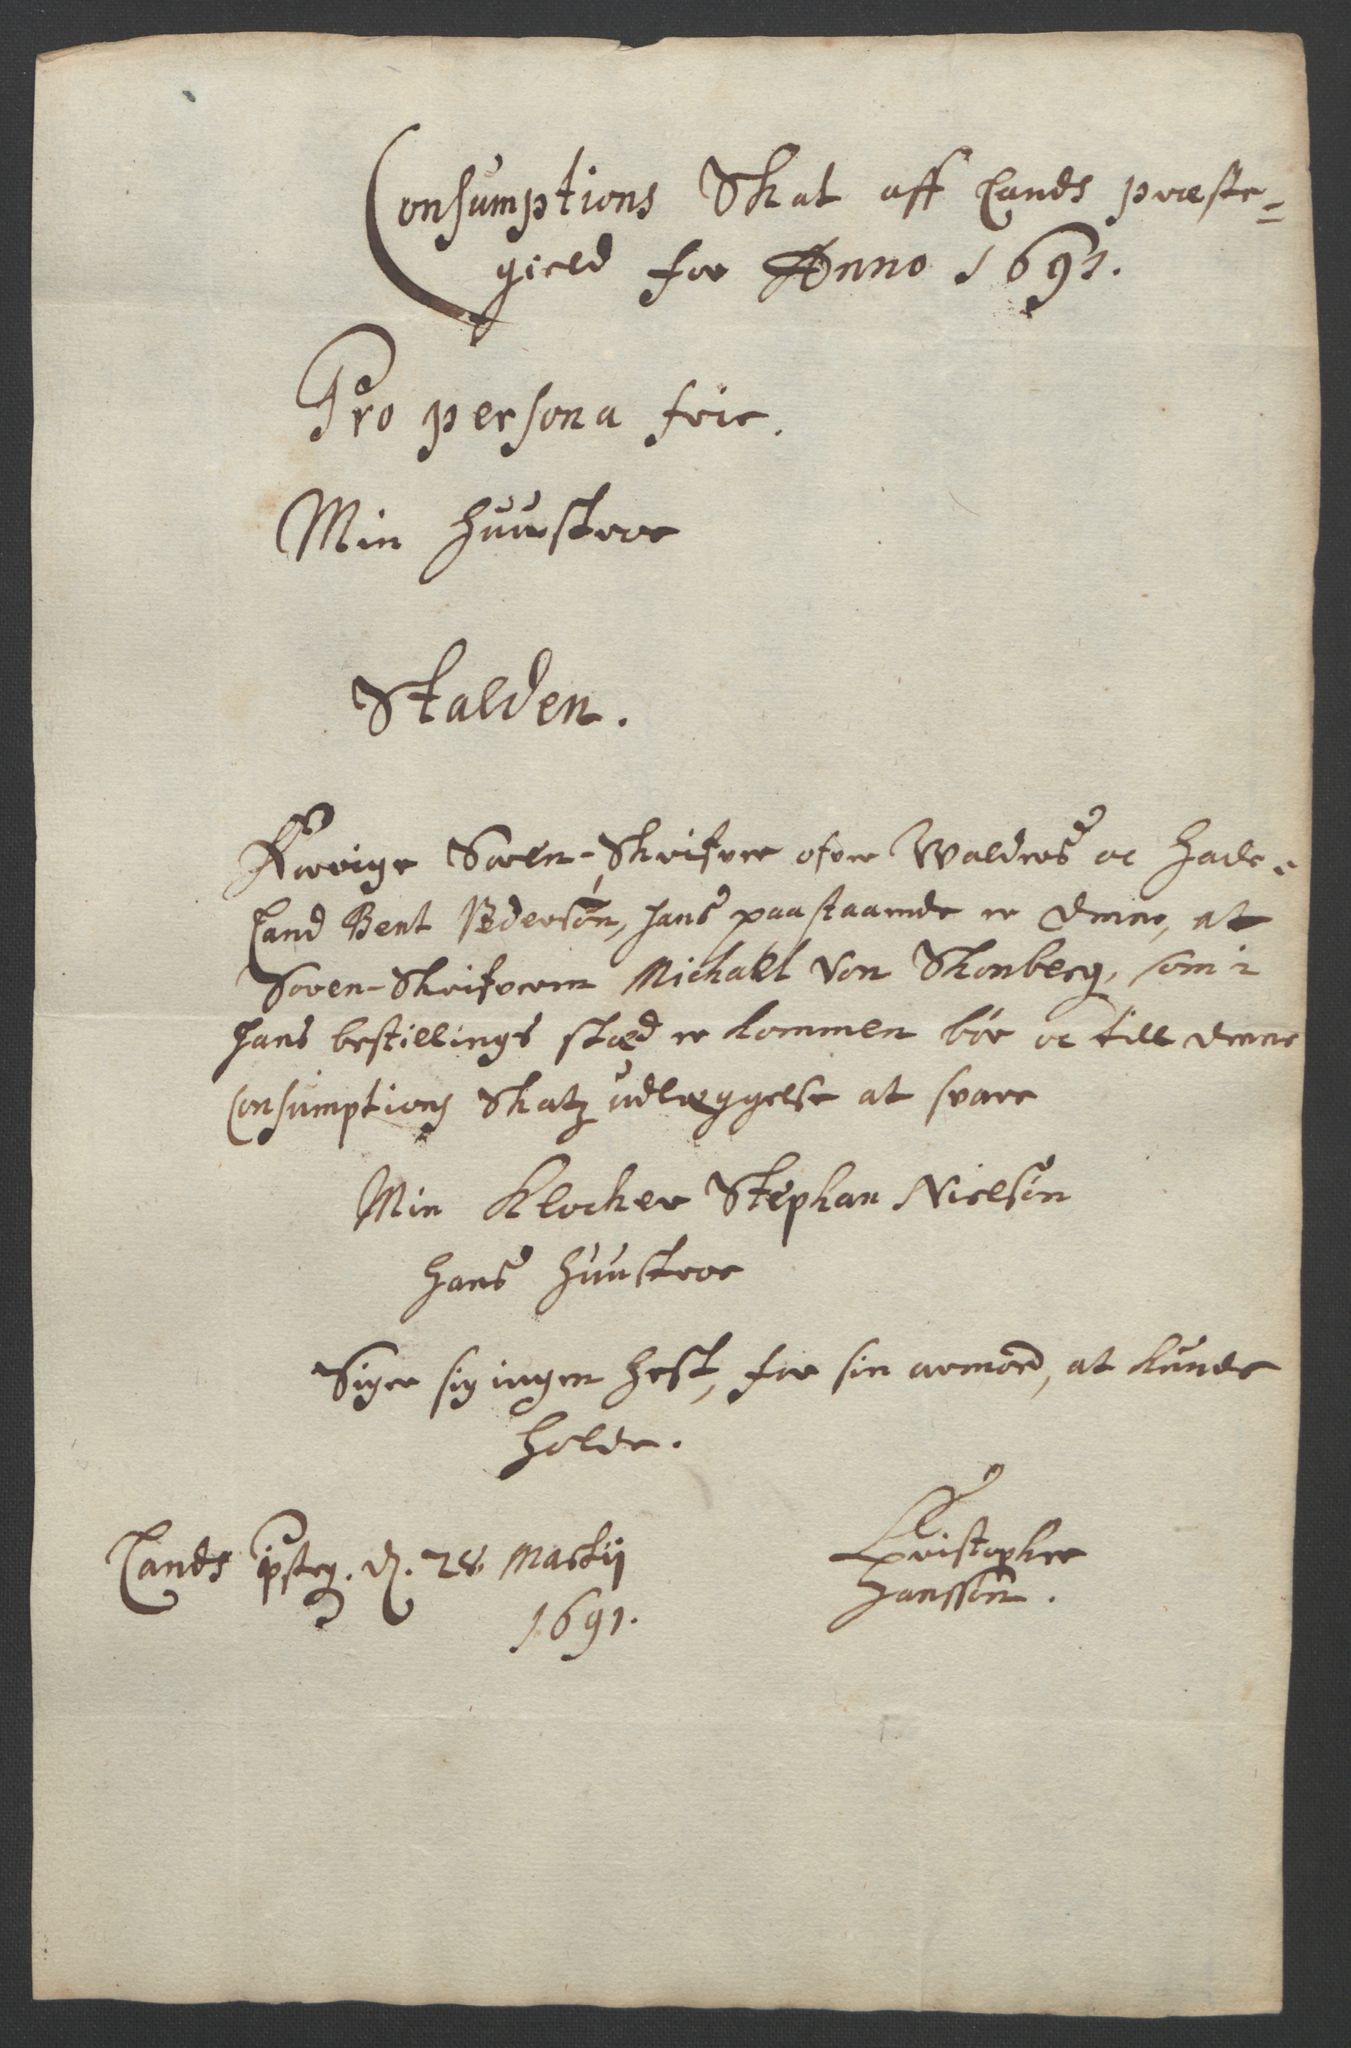 Consumptions Skat aff Lands præste=
gield for Anno 1691.
Pro persona frie.
Min Huustroe
Stalden.
Forrige Soren-Skrifver ofver Walders oc Hade-
land Bent Pedersøn, hans paastaaende er denne, at
Soren-Skrifveren Michakl Von Skonberg, som i
hans bestillings stæd er kommen bør oc till denne
Consumptions Skatz udlæggelse at svare
Min Klocker Stephan Nielsøn
hans Huustroe
Siger sig ingen hest, for sin armod, at kunde
holde.
Lands psteg. d. 28 Martij
1691.
Christopher
Hanssøn.